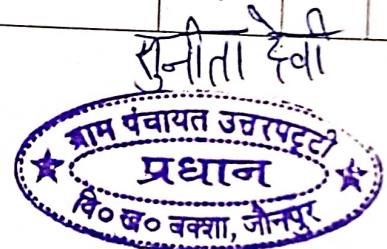 सुनीता देवी
ग्राम पंचायत उत्तरपट्टी
प्रधान
वि० ख० बक्शा, जौनपुर